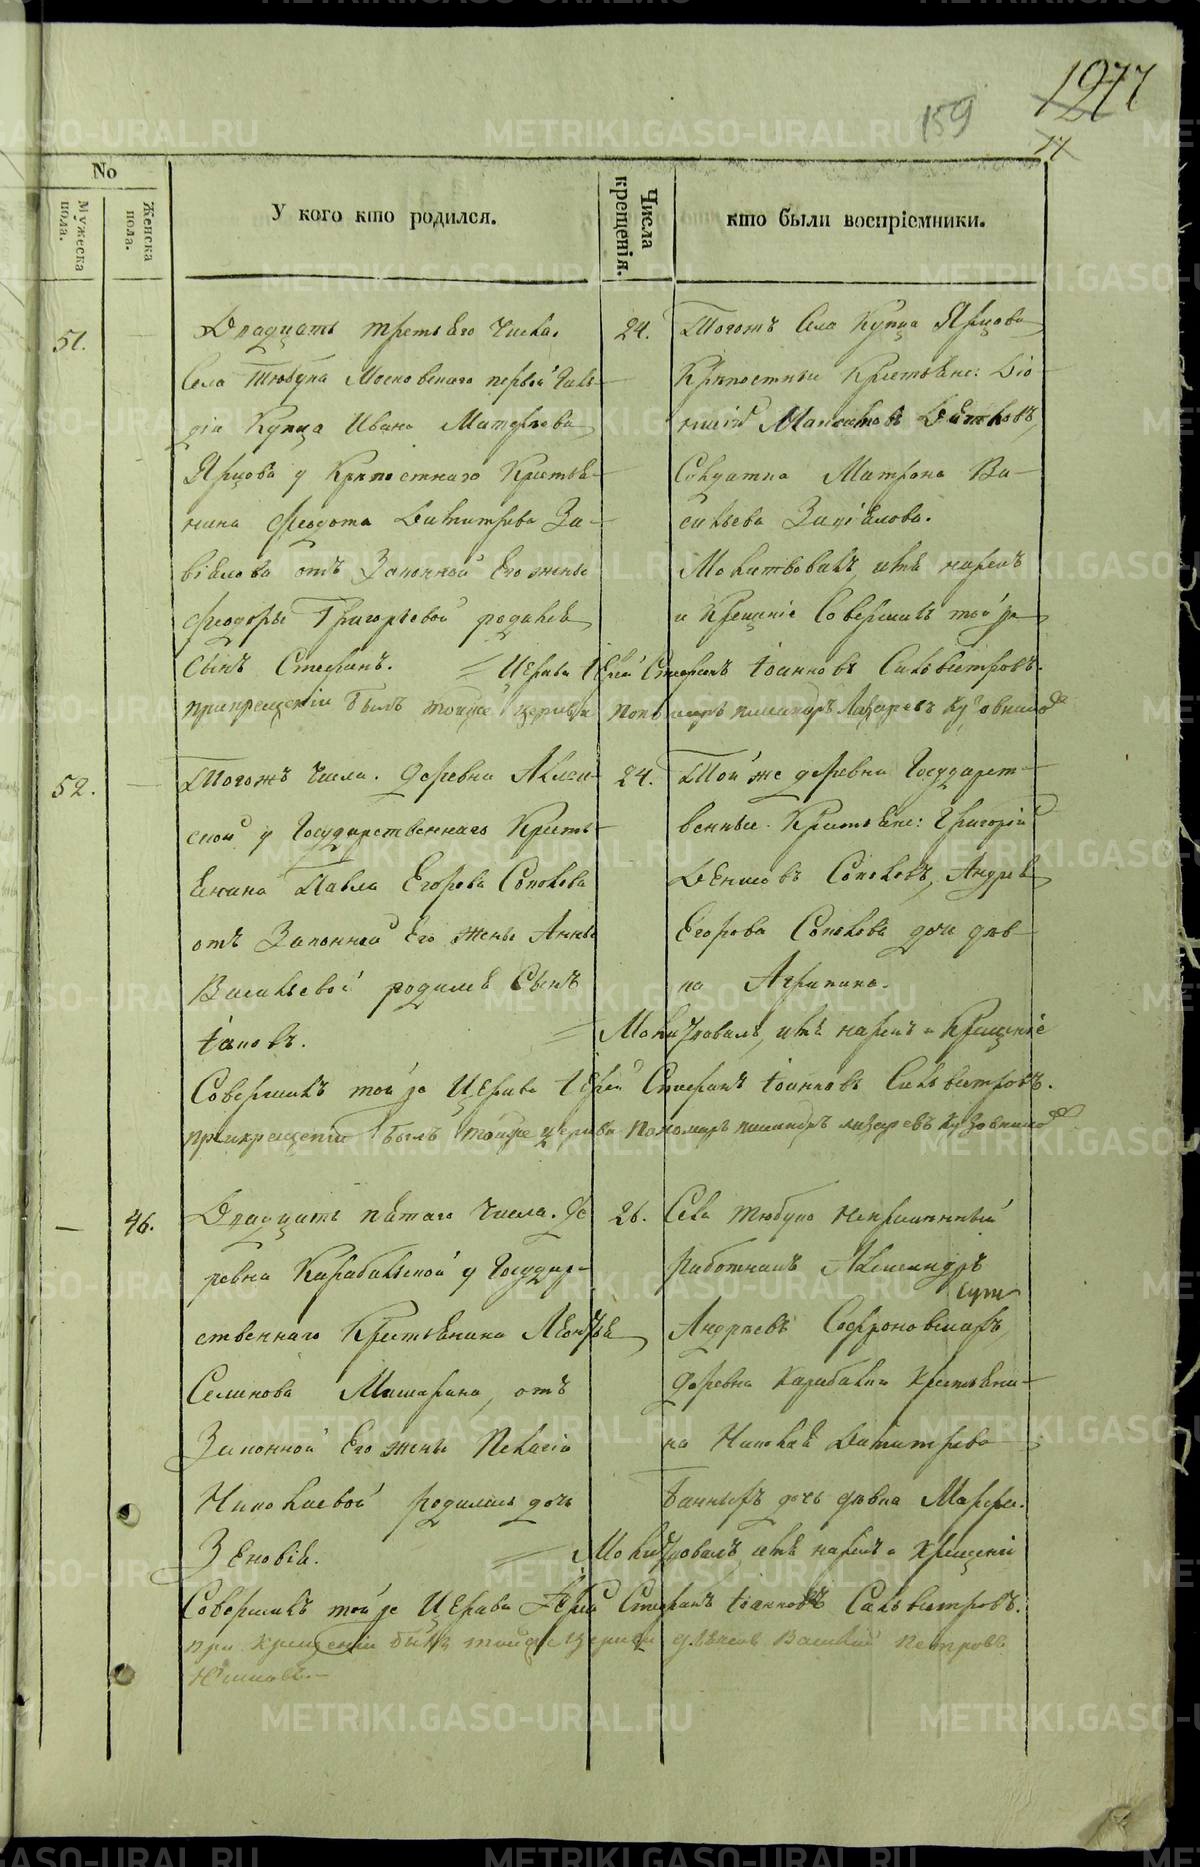 1277
159
No
Мужеска пола.
Женска пола.
У кого кто родился.
Числа крещенія.
кто были воспріемники.
51.
Двадцать третьяго числа.
Села Тюбука Московскаго первой гиль-
діи Купца Ивана Матвѣева
Ярцова у Крѣпостнаго Крестья-
нина Феодота Димитріева За-
віялова отъ Законной его жены
Феодоры Григорьевой родился
Сынъ Стефанъ.
24.
Тогожъ Села Купца Ярцова
Крѣпостные Крестьяне: Діо-
нисій Максимовъ Дятловъ,
Солдатка Матрона Ва-
сильева Завіялова.
Молитвовалъ, имя нарекъ
и Крещеніе Совершилъ той же
Церкви Іерей Стефанъ Іоанновъ Сильвестровъ.
при крещеніи былъ тойже церкви Лазаревъ
52.
Тогожъ числа. деревни
у Государственнаго Кресть-
янина Павла Егорова Соколова
отъ Законной Его жены Анны
Васильевой родился Сынъ
Іаковъ.
24.
Той же деревни Государст-
венные Крестьяне: Григорій
Соколовъ, Андрея
Егорова Соколова дочь дѣв-
ка Агрипина.
Молитвовалъ, имя нарекъ и Крещеніе
Совершилъ той же Церкви Іерей Стефанъ Іоанновъ Сильвестровъ.
при крещеніи былъ тойже церкви Пономарь Лазаревъ
46.
Двадцать пятаго числа. Де
ревни Карабольской у Государ-
ственнаго Крестьянина Леонтья
Мишарина, отъ
Законной Его жены Пелагіи
Николаевой родилась дочь
Зеновія.
26.
Села Тюбука Непремѣнный
работникъ Александръ
Андреевъ
деревни Караболки Крестьяни-
на Николая Димитріева
дочь дѣвка Марфа.
Молитвовалъ, имя нарекъ и Крещеніе
Совершилъ той же Церкви Іерей Стефанъ Іоанновъ Сильвестровъ.
при крещеніи былъ тойже Церкви Василій Петровъ
METRIKI.GASO-URAL.RU